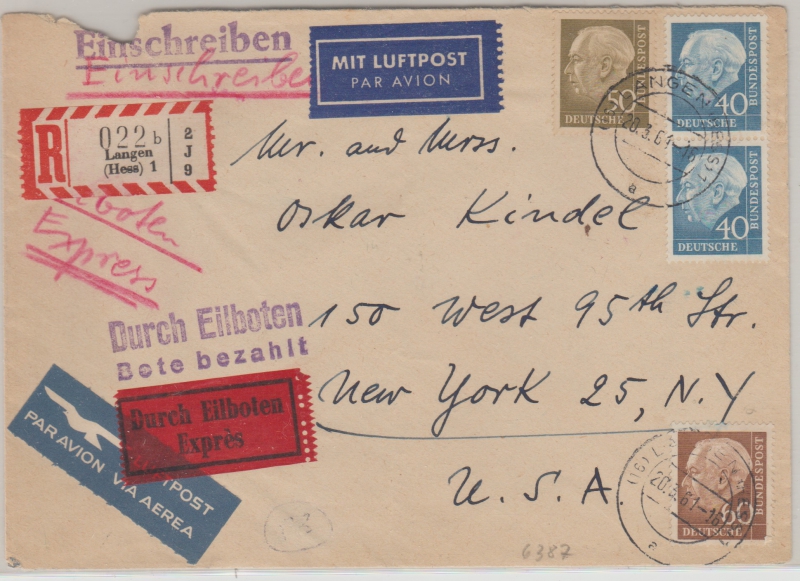 Einschreiben
Einschreiben
MIT LUFTPOST
PAR AVION
50
DEUTSCHE
BUNDESPOST
40
DEUTSCHE
BUNDESPOST
40
DEUTSCHE
BUNDESPOST
LANGEN (HESS) 1
20.3.61-16
a
R
022 b
Langen
(Hess) 1
2
J
9
Eilboten
Express
Mr. and Mrss.
Oskar Kindel
150 West 95th Str.
New York 25, N.Y
U.S.A.
Durch Eilboten
Bote bezahlt
Durch Eilboten
Exprès
LUFTPOST
PAR AVION VIA AEREA
60
DEUTSCHE
BUNDESPOST
(16) L
20.3.61-16
a
6387